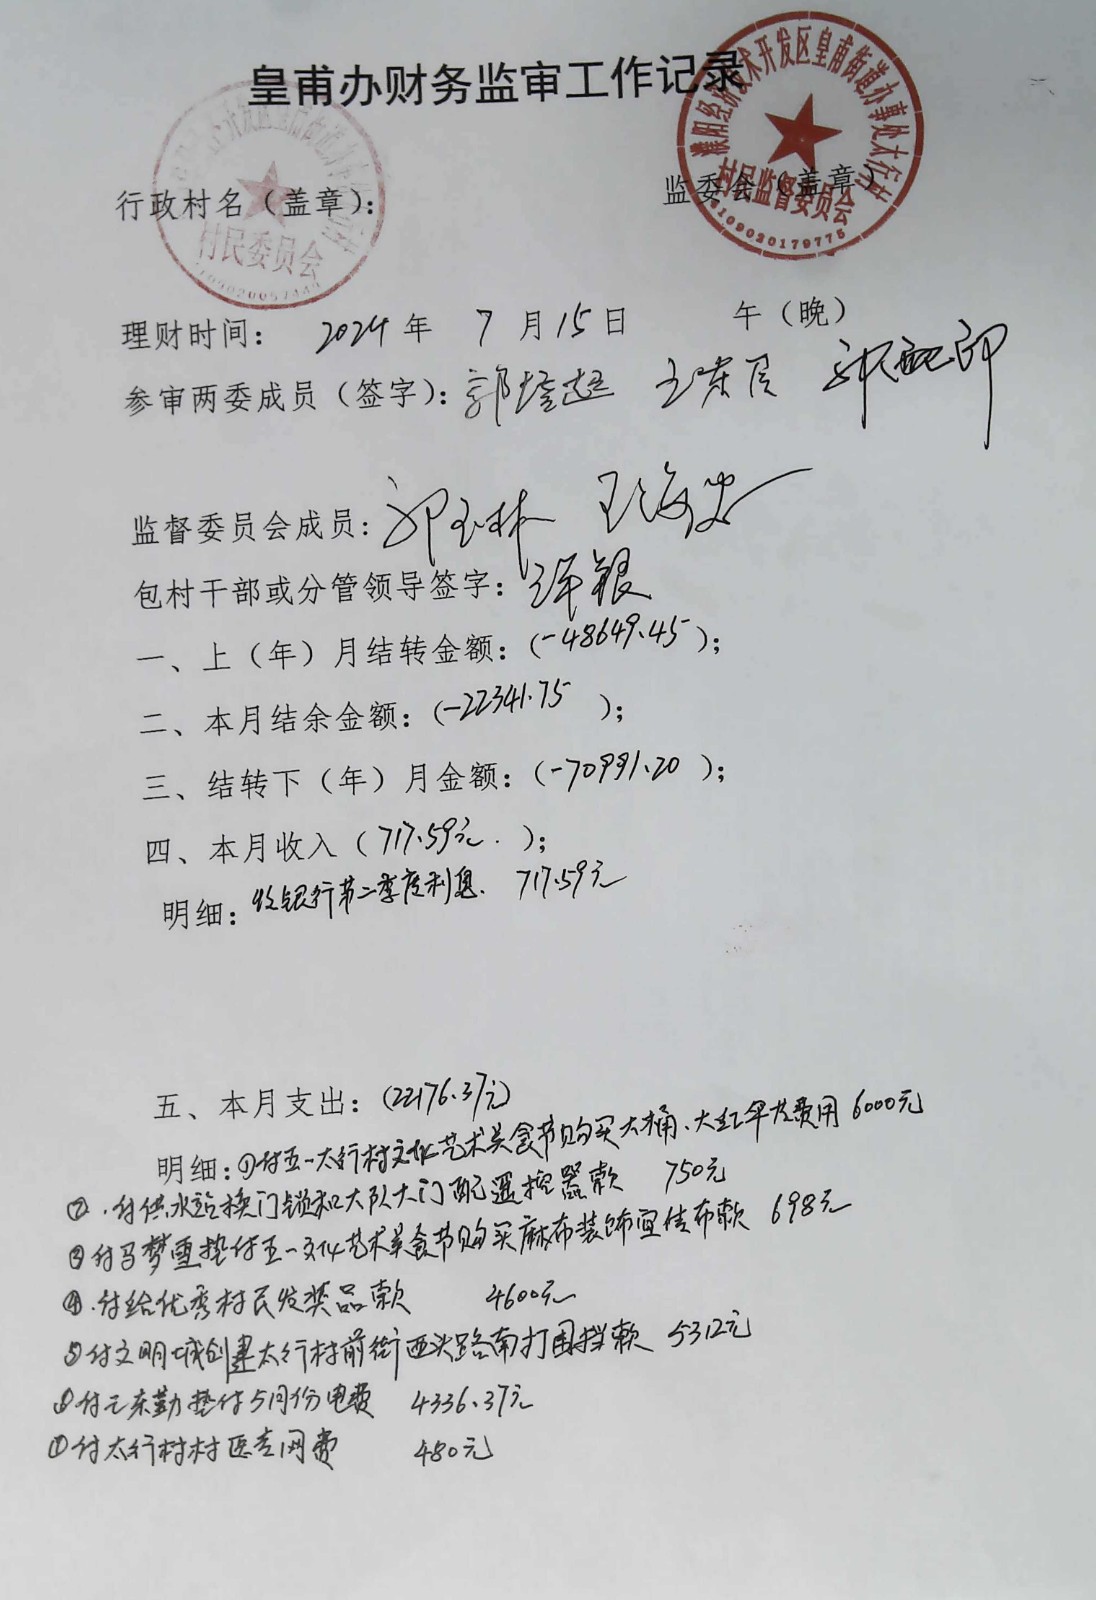 皇甫办财务监审工作记录
濮阳经济技术开发区皇甫街道办事处太行村
村民监督委员会
4109020179775
行政村名（盖章）：
村民委员会
监委会（盖章）
理财时间： 2024年 7月15日 午（晚）
参审两委成员（签字）：
监督委员会成员：郭玉林 王海忠
包村干部或分管领导签字：
一、上（年）月结转金额：（-48649.45）；
二、本月结余金额：（-22341.75）；
三、结转下（年）月金额：（-70991.20）；
四、本月收入（717.59元.）；
明细：收银行第二季度利息. 717.59元
五、本月支出：（22176.37元）
明细：①付五一太行村文化艺术美食节购买大桶、大红伞及费用 6000元
②.付供水站换门锁和大队大门配遥控器款 750元
③付马梦雪垫付五一文化艺术美食节购买麻布装饰宣传布款 698元
④.付给优秀村民发奖品款 4600元
⑤付文明城创建太行村前街西头路南打围挡款 5312元
⑥付王东勤垫付5月份电费 4336.37元
⑦付太行村村医专网费 480元